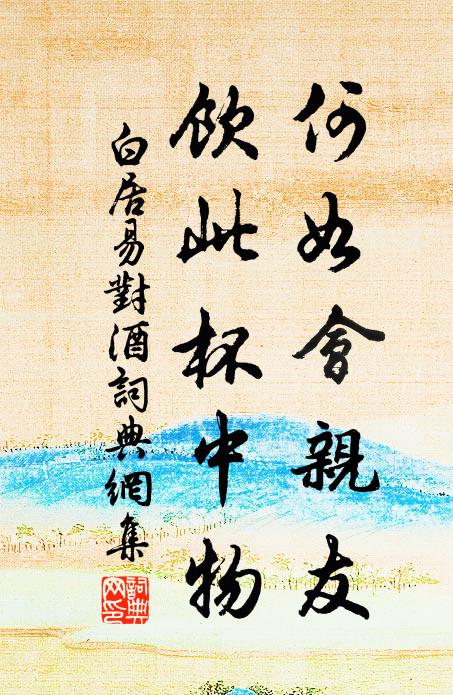 何如會親友
飲此杯中物
白居易對酒詞典網集
詞典網印